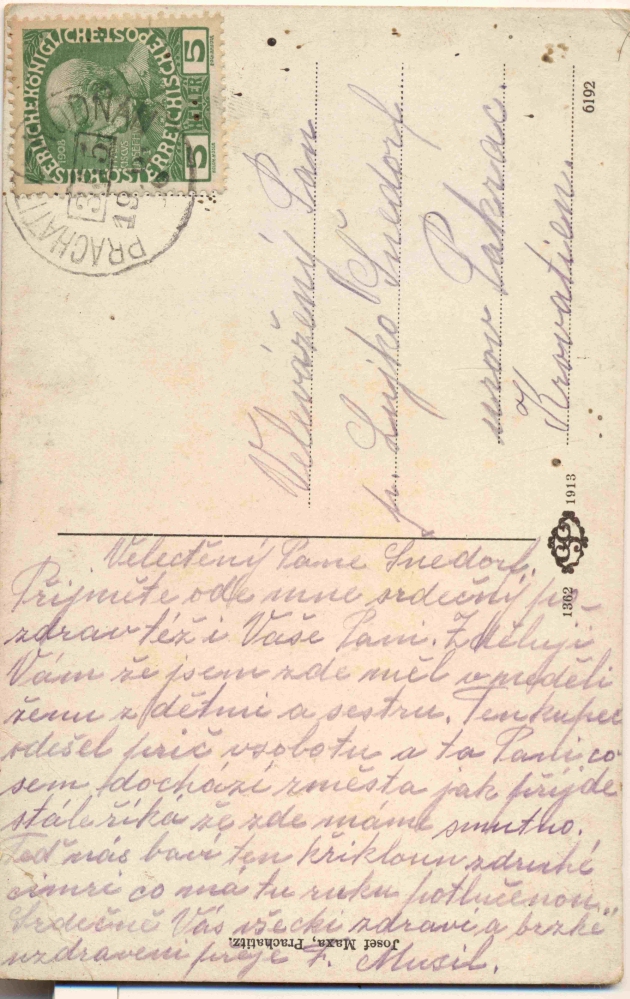 KAISERLICHE KÖNIGLICHE ÖSTERREICHISCHE POST
5 HELLER 5
1908
PRACHATITZ
Velevážený Pan
p. Lujko Šnedorf
Pakrac
Krovatien.
6192
1913
1362
Velectěný Pane Snedorf.
Přijměte ode mne srdečný po-
zdrav též i Vaše Pani. Zděluji
Vám že jsem zde měl v neděli
ženu z dětmi a sestru. Ten kupec
odešel prič vsobotu a ta Pani co
sem dochází změsta jak přijde
stále říká že zde máme smutno.
Teď nás baví ten křikloun zdruhé
cimri co má tu ruku potlučenou.
Srdečně Vás všecki zdraví a brzké
uzdraveni přeje F. Musil.
Josef Maxa, Prachatitz.